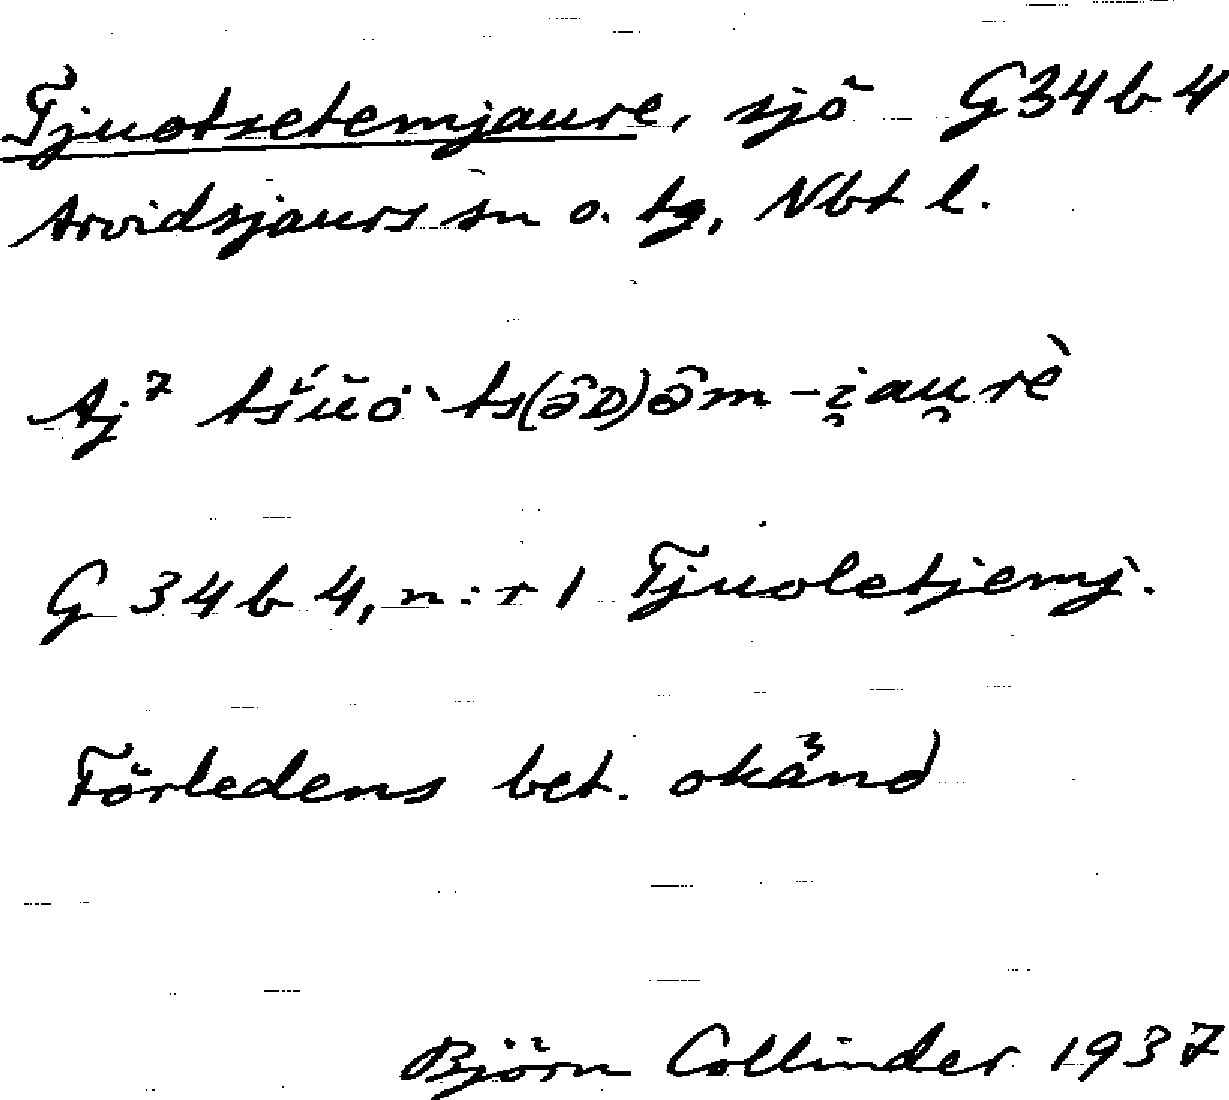 Tjuotsetemjaure, sjö G34b4
Arvidsjaurs sn o. tg, Nbt l.
Aj⁷ tśŭó̀ ts(ə̂D)ə̂m-i̯au̯rè
G 34 b 4, n:r 1 Tjuoletjemj.
Förledens bet. okänd
Björn Collinder 1937